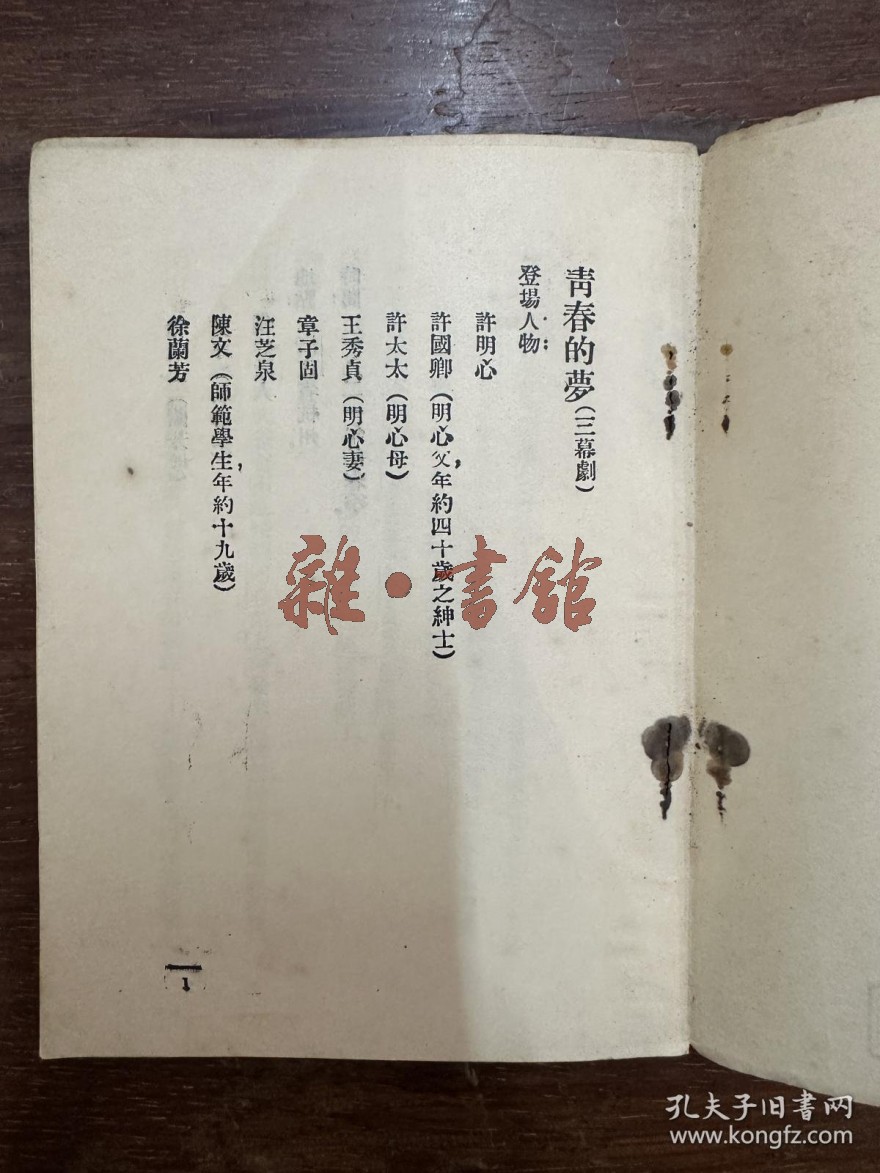 青春的夢（三幕劇）
登場人物：
許明心
許國卿（明心父，年約四十歲之紳士）
許太太（明心母）
王秀貞（明心妻）
章子固
汪芝泉
陳文（師範學生，年約十九歲）
徐蘭芳
1
雜·書館
孔夫子旧书网
www.kongfz.com